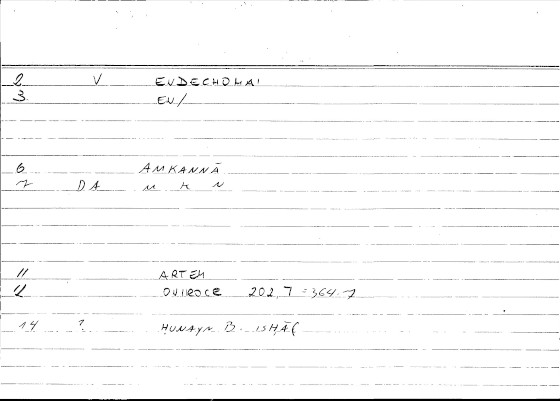 2 V ENDECHOMAI
3 EN/
6 AMKANNĀ
7 DA M K N
11 ARTEM
12 OVIROCE 202,7 = 364.7
14 ? ḤUNAYN B. ISḤĀQ